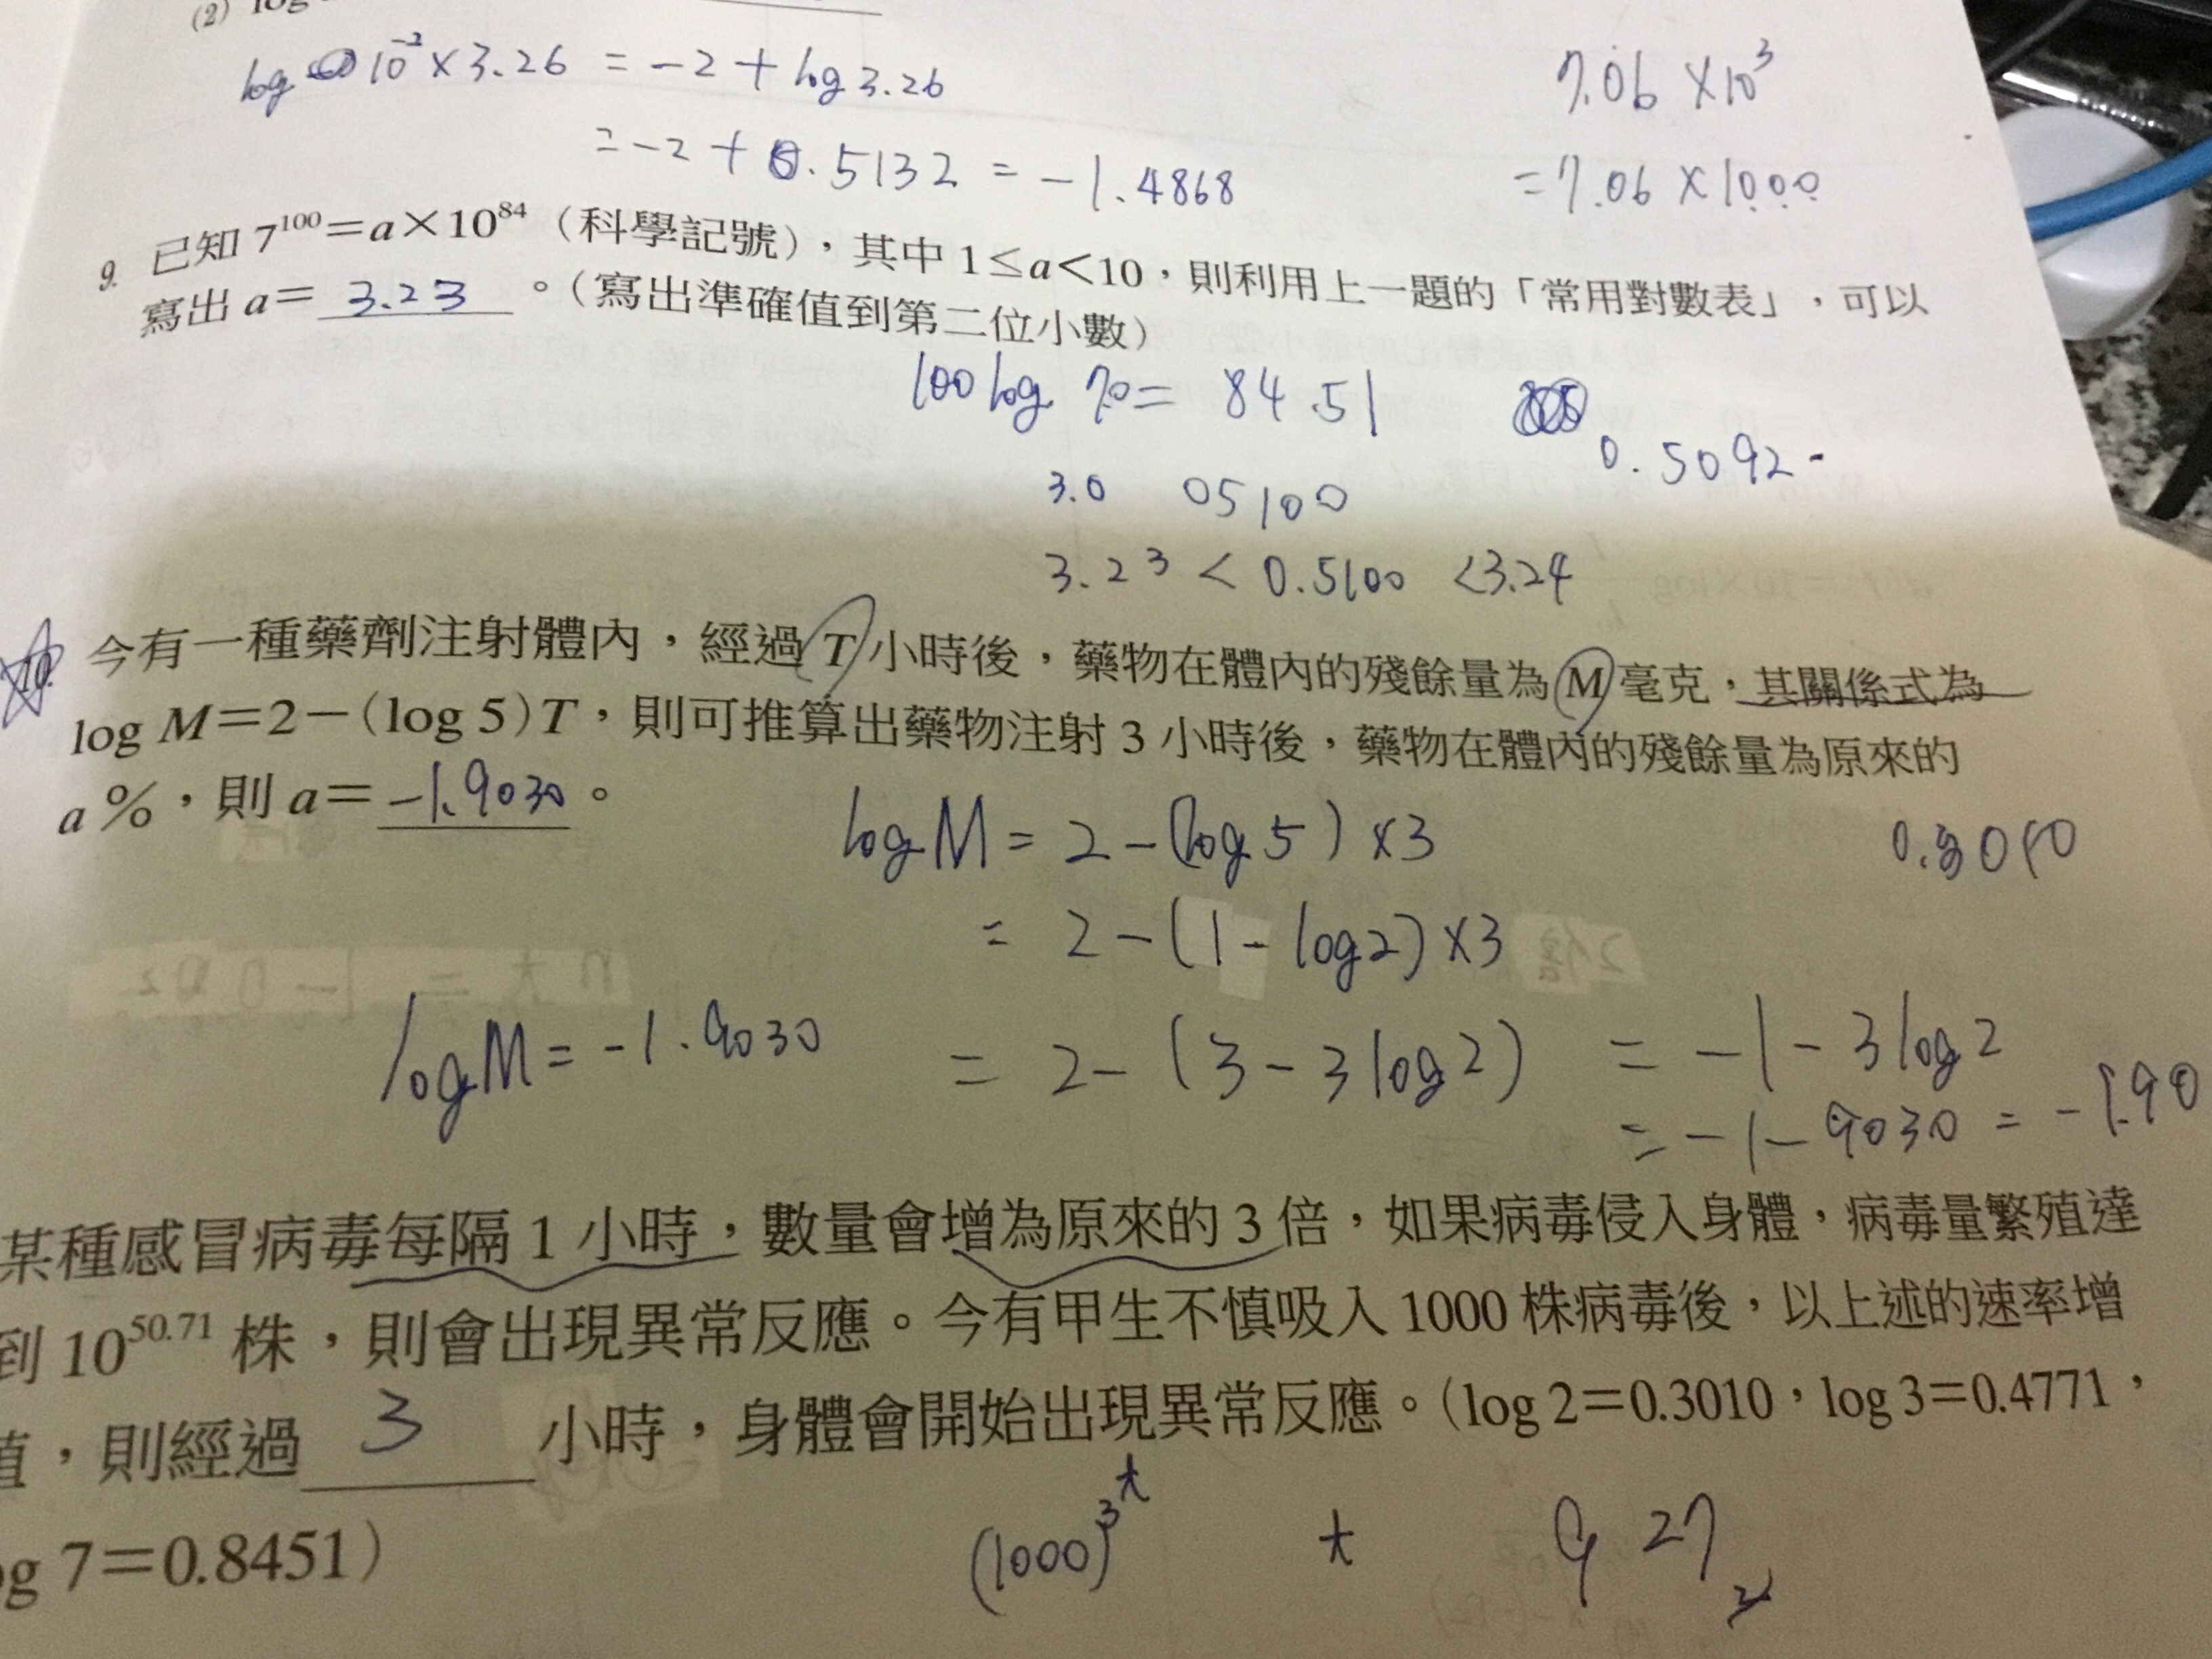 (2) log
log 10⁻² × 3.26 = -2 + log 3.26
= -2 + 0.5132 = -1.4868
7.06 × 10³
= 7.06 × 1000
9. 已知 7¹⁰⁰=a×10⁸⁴（科學記號），其中 1≤a<10，則利用上一題的「常用對數表」，可以
寫出 a= 3.23 。（寫出準確值到第二位小數）
100 log 7.0 = 84.51
0.5092
3.0 05100
3.23 < 0.5100 < 3.24
10. 今有一種藥劑注射體內，經過 T 小時後，藥物在體內的殘餘量為 M 毫克，其關係式為
log M=2－(log 5)T，則可推算出藥物注射 3 小時後，藥物在體內的殘餘量為原來的
a%，則 a= -1.9030 。
log M = 2 - (log 5) × 3
0.3010
= 2 - (1 - log 2) × 3
= 2 - (3 - 3 log 2) = -1 - 3 log 2
log M = -1.9030
= -1 - 9030 = -1.90
某種感冒病毒每隔 1 小時，數量會增為原來的 3 倍，如果病毒侵入身體，病毒量繁殖達
到 10⁵⁰·⁷¹ 株，則會出現異常反應。今有甲生不慎吸入 1000 株病毒後，以上述的速率增
值，則經過 3 小時，身體會開始出現異常反應。（log 2=0.3010，log 3=0.4771，
og 7=0.8451）
(1000)^3^t t 9 27